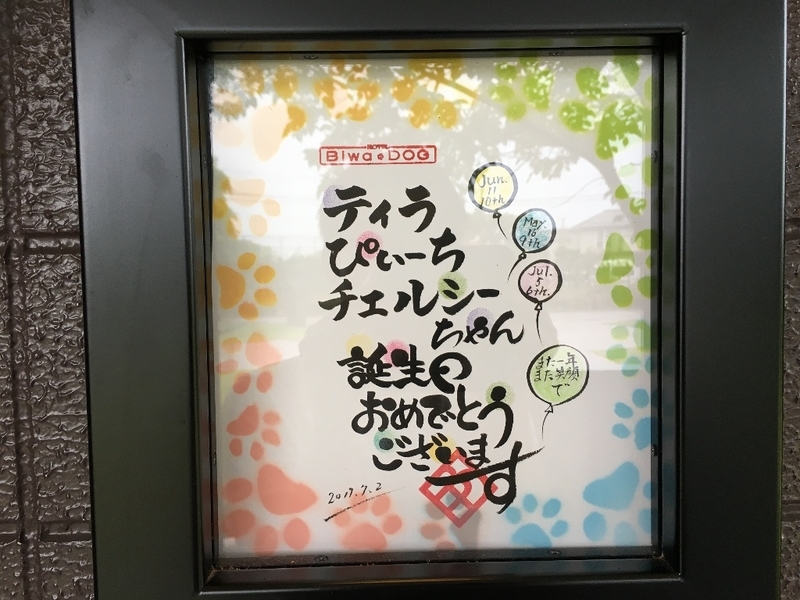 HOTEL
Biwa DOG
ティラ
ぴぃーち
チェルシー
ちゃん
誕生日
おめでとう
ございます
2017.7.2
Jun.
11
10th
May.
16
9th
Jul.
5
6th.
また一年
また笑顔
で